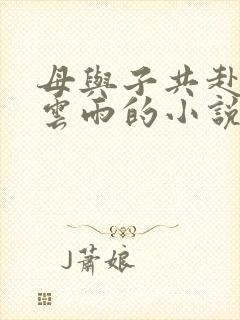 母與子共赴
雲雨的小說
J蕭娘